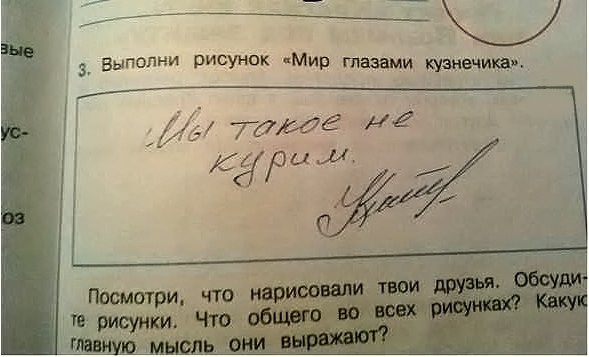 вые
3. Выполни рисунок «Мир глазами кузнечика».
Мы такое не
курим.
ус-
оз
Посмотри, что нарисовали твои друзья. Обсуди-
те рисунки. Что общего во всех рисунках? Какую
главную мысль они выражают?